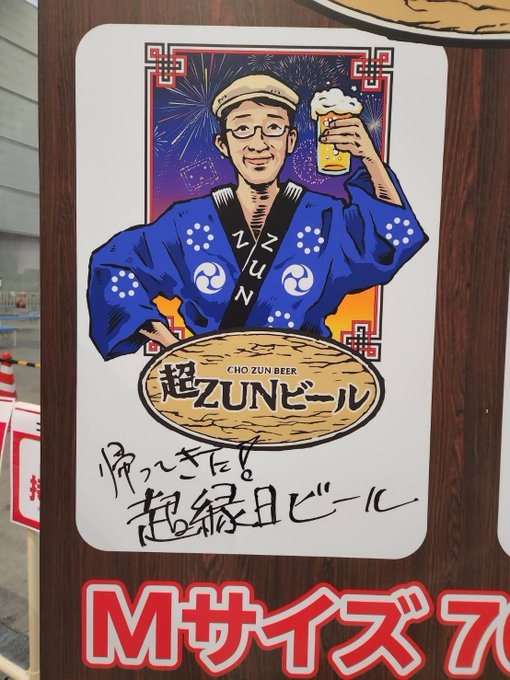 ZUN
ZUN
CHO ZUN BEER
超ZUNビール
帰ってきた!
超縁日ビール
Mサイズ 70